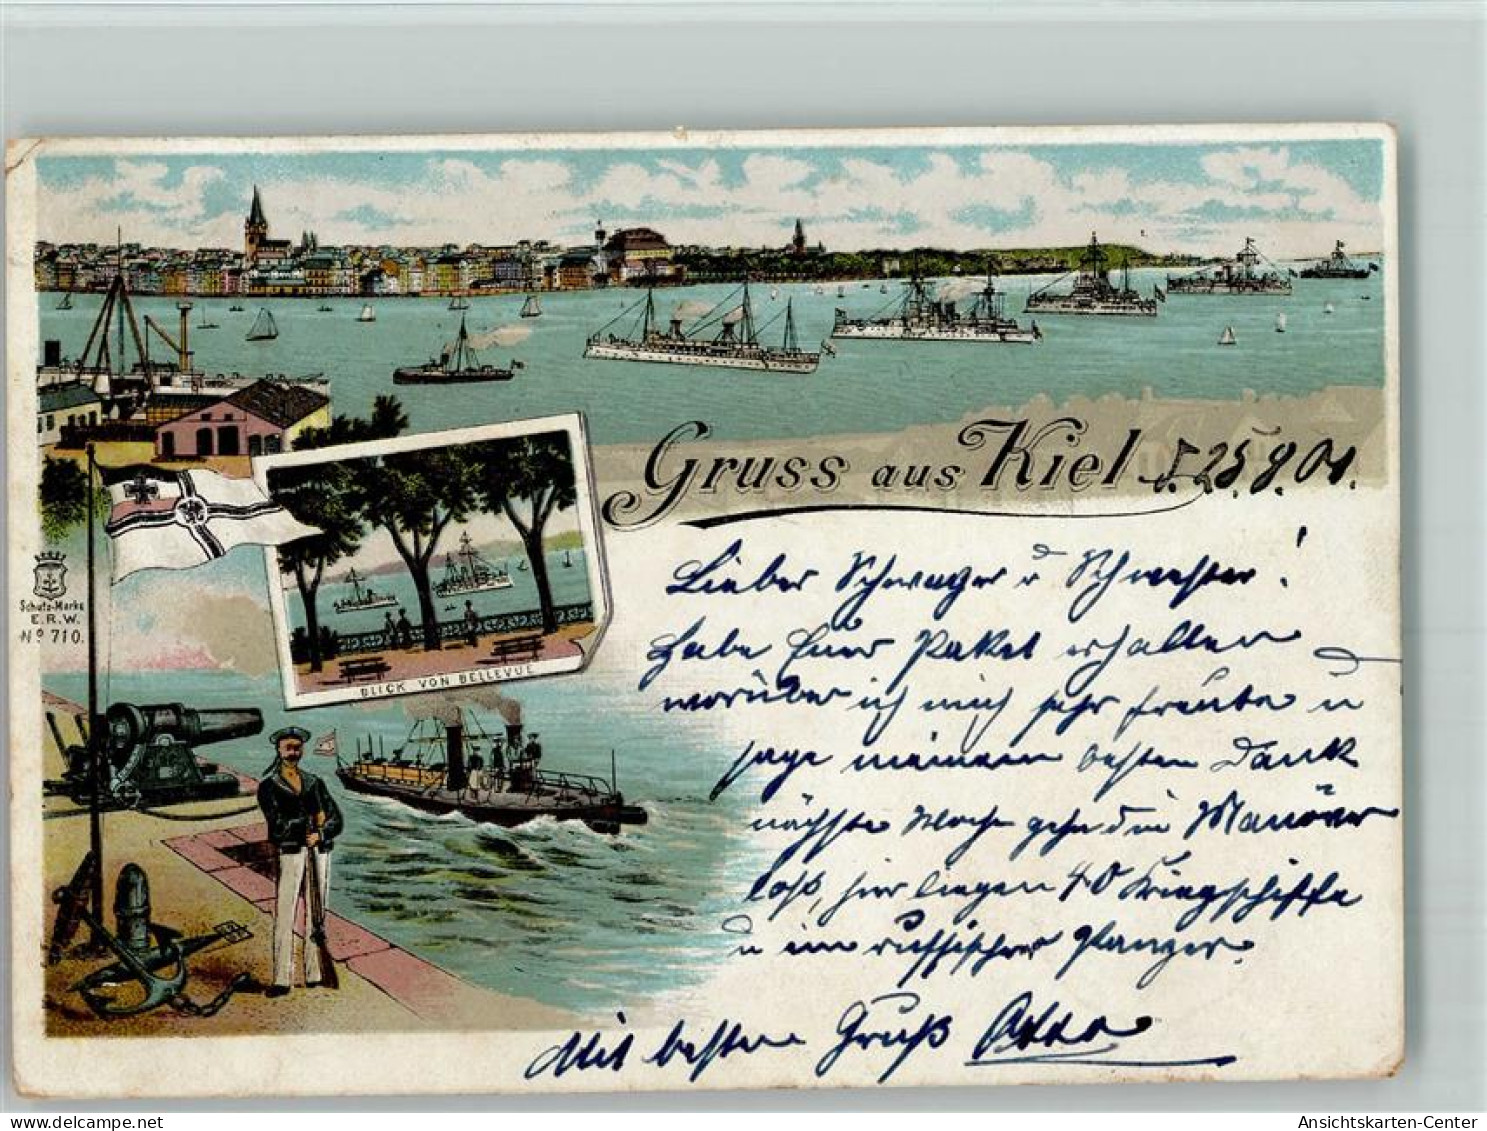 Gruss aus Kiel, 25.8.01.
Schutz-Marke
E.R.W.
Nº 710.
BLICK VON BELLEVUE
Lieber Schwager u Schwester!
Habe Euer Paket erhalten
worüber ich mich sehr freute u
sage meinen besten Dank
nächste Woche gehn die Manöver
loß, hier liegen 40 Kriegschiffe
u ein russischer Panzer.
Mit besten Gruß Otto
Ansichtskarten-Center